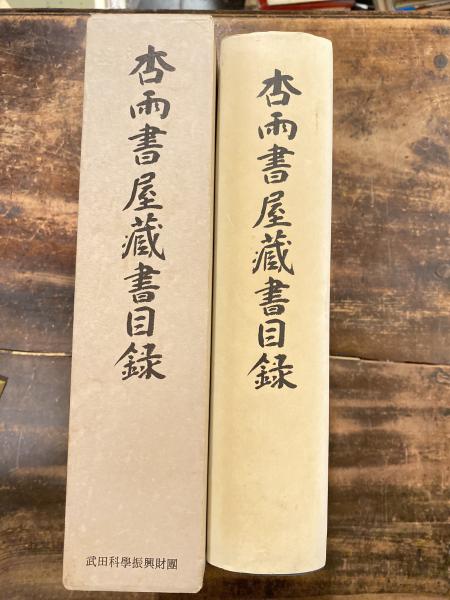 杏雨書屋藏書目録
武田科學振興財團
杏雨書屋藏書目録